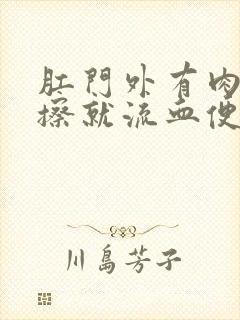 肛門外有肉
擦就流血便
川島芳子